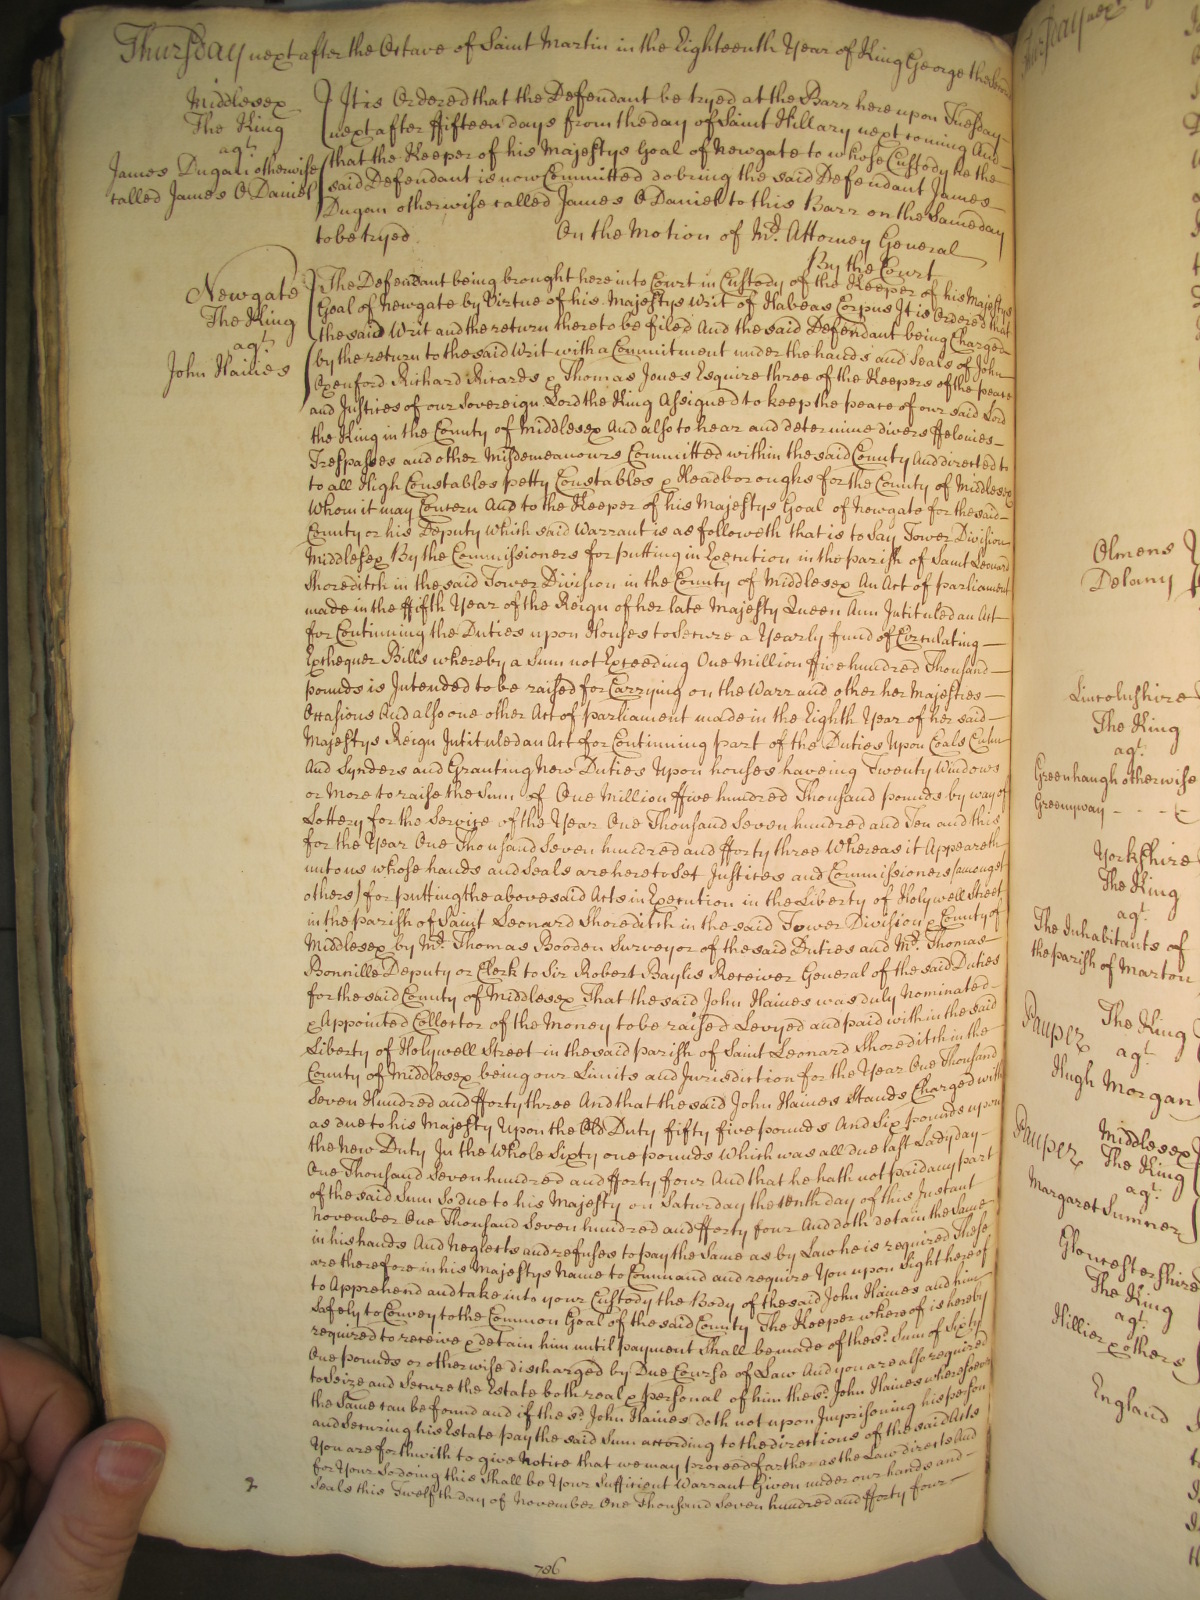 Thursday next after the Octave of Saint Martin in the Eighteenth Year of King George the Second
Middlesex
The King
agt.
James Dugan otherwise
called James O Daniel
It is Ordered that the Defendant be tryed at the Barr here upon Tuesday
next after ffifteen days from the day of Saint Hillary next coming And
that the Keeper of his Majestys Goal of Newgate to whose Custody he the
said Defendant is now Committed do bring the said Defendant James
Dugan otherwise called James O Daniel to this Barr on the Same day
to be tryed On the Motion of Mr. Attorney General
By the Court
Newgate
The King
agt.
John Haines
The Defendant being brought here into Court in Custody of the Keeper of his Majestys
Goal of Newgate by Virtue of his Majestys Writ of Habeas Corpus It is Ordered that
the said Writ and the return thereto be filed And the said Defendant being Charged
by the return to the said Writ with a Commitment under the hands and Seals of John
Oxenford Richard Ricards & Thomas Jones Esquire three of the Keepers of the peace
and Justices of our Sovereign Lord the King Assigned to keep the peace of our said Lord
the King in the County of Middlesex And also to hear and determine divers ffelonies
Trespasses and other Misdemeanours Committed within the said County And directed to
to all High Constables petty Constables & Headboroughs for the County of Middlesex
Whom it may Concern And to the Keeper of his Majestys Goal of Newgate for the said
County or his Deputy Which said Warrant is as followeth that is to Say Tower Division
Middlesex By the Commissioners for putting in Execution in the parish of Saint Leonard
Shoreditch in the said Tower Division in the County of Middlesex An Act of parliament
made in the ffifth Year of the Reign of her late Majesty Queen Ann Intituled an Act
for Continuing the Duties upon Houses to Secure a Yearly fund of Circulating
Exchequer Bills whereby a Sum not Exceeding One Million ffive hundred Thousand
pounds is Intended to be raised for Carrying on the Warr and other her Majesties
Occasions And also one other Act of parliament made in the Eighth Year of her said
Majestys Reign Intituled an Act for Continuing part of the Duties Upon Coals Culm
And Synders and Granting New Duties Upon houses haveing Twenty Windows
or More to raise the Sum of One Million ffive hundred Thousand pounds by way of
Lottery for the Service of the Year One Thousand Seven hundred and Ten and this
for the Year One Thousand Seven hundred and fforty three Whereas it Appeareth
unto us whose hands and Seals are hereto Set Justices and Commissioners (amongst
others) for putting the abovesaid Acts in Execution in the Liberty of Holywell Street
in the parish of Saint Leonard Shoreditch in the said Tower Division & County of
Middlesex by Mr. Thomas Booden Surveyor of the said Duties and Mr. Thomas
Bonville Deputy or Clerk to Sir Robert Baylis Receiver General of the said Duties
for the said County of Middlesex That the said John Haines was duly Nominated
& Appointed Collector of the Money to be raised Levyed and paid within the said
Liberty of Holywell Street in the said parish of Saint Leonard Shoreditch in the
County of Middlesex being our Limits and Jurisdiction for the Year One Thousand
Seven Hundred and fforty three And that the said John Haines Stands Charged with
as due to his Majesty Upon the Old Duty fifty five pounds And Six pounds upon
the New Duty In the Whole Sixty one pounds Which was all due last Ladyday
One Thousand Seven hundred and fforty four And that he hath not paid any part
of the said Sum So due to his Majesty on Saturday the tenth day of this Instant
November One Thousand Seven hundred and fforty four And doth detain the Same
in his hands And Neglects and refuses to pay the Same as by Law he is required These
are therefore in his Majestys Name to Command and require You upon Sight hereof
to Apprehend and take into your Custody the Body of the said John Haines and him
Safely to Convey to the Common Goal of the said County The Keeper whereof is hereby
required to receive & detain him until payment Shall be made of the sd. Sum of Sixty
One pounds or otherwise discharged by Due Course of Law And you are also required
to Seize and Secure the Estate both real & personal of him the sd. John Haines wheresoever
the Same can be found and if the sd. John Haines doth not upon Imprisoning his person
and Securing his Estate pay the said Sum according to the directions of the said Acts
You are forthwith to give Notice that we may proceed farther as the Law directs And
for Your So doing this Shall be Your Sufficient Warrant Given under our hands and
Seals this Twelfth day of November One Thousand Seven hundred and fforty four
786
Thursday next
Olmens
Delany
Lincolnshire
The King
agt.
Greenhaugh otherwise
Greenway
Yorkshire
The King
agt.
The Inhabitants of
the parish of Marton
Pauper
The King
agt.
Hugh Morgan
Pauper
Middlesex
The King
agt.
Margaret Sumner
Gloucestershire
The King
agt.
Hillier & others
England